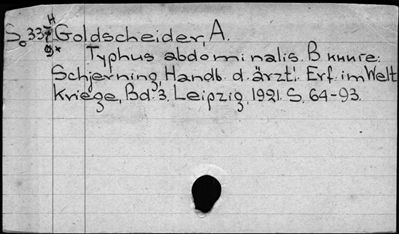 H
S₀337 Goldscheider, A.
9*
Typhus abdominalis. В книге:
Schjerning, Handb. d. ärztl. Erf. im Welt
kriege, Bd. 3. Leipzig, 1921. S. 64-93.